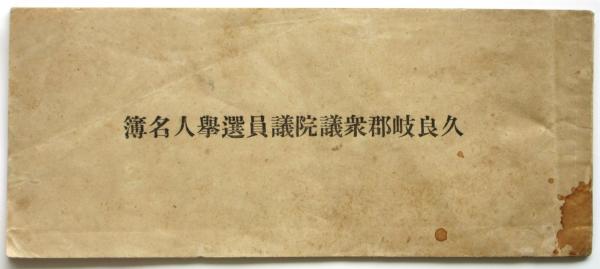 簿名人擧選員議院議衆郡岐良久